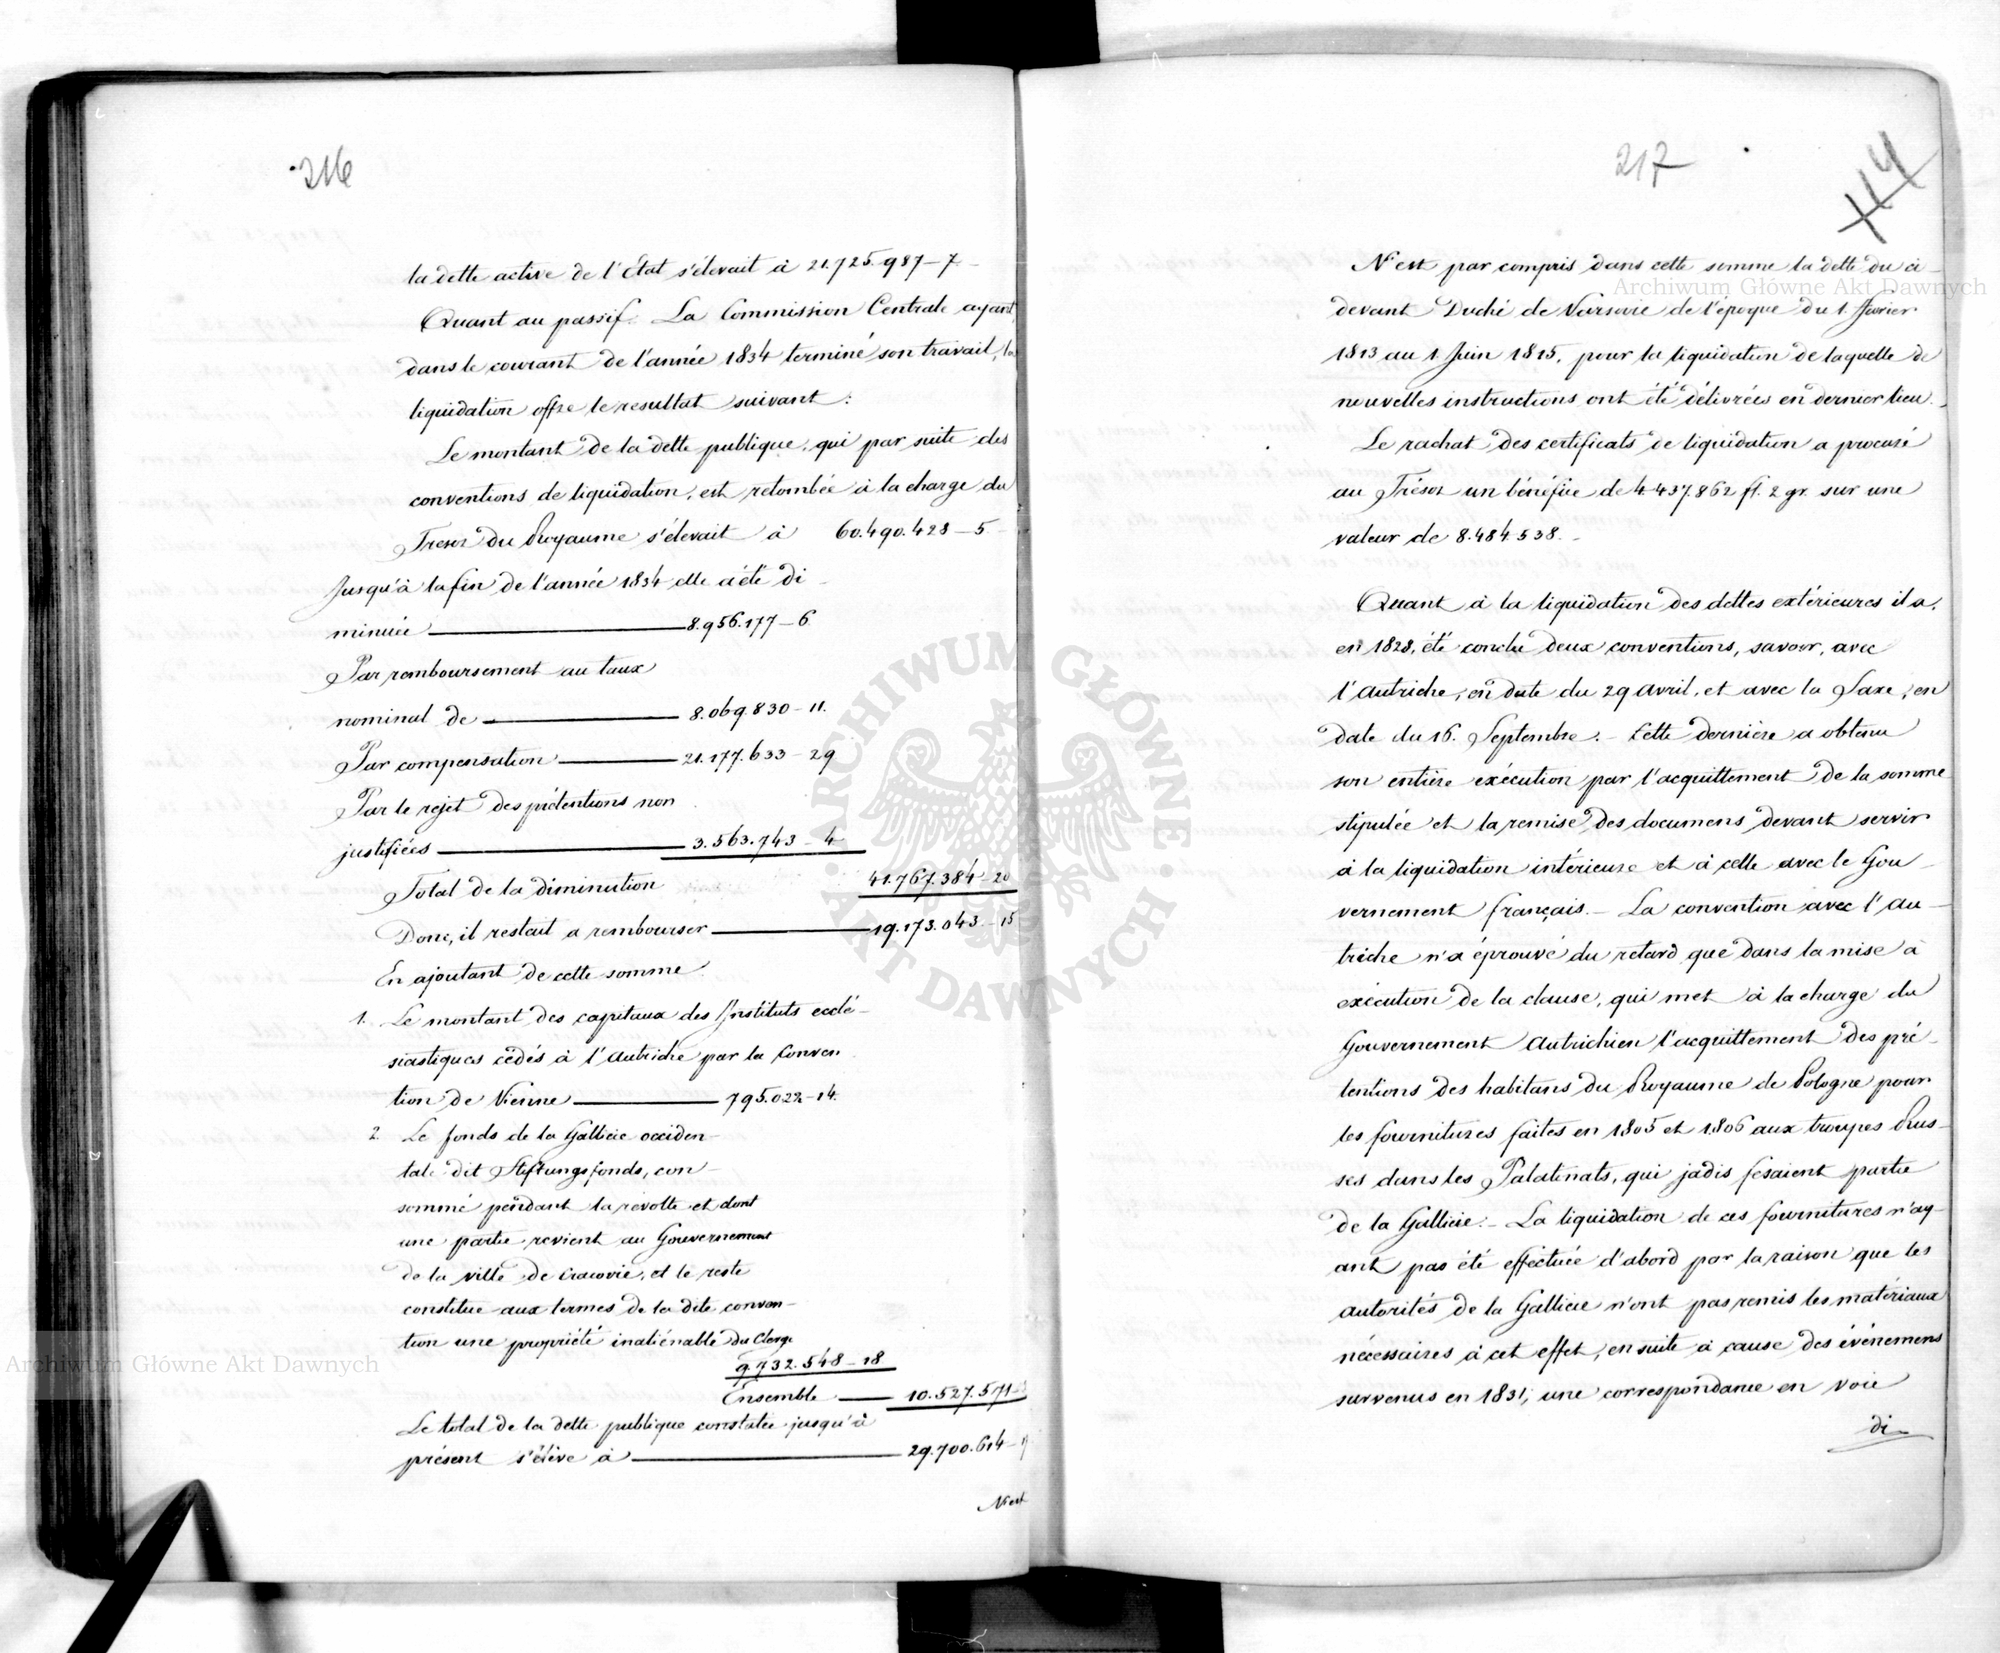 216
la dette active de l'État s'élevait à 21.725.987–7.
Quant au passif. La Commission Centrale ayant,
dans le courant de l'année 1834 terminé son travail, la
liquidation offre le resultat suivant:
Le montant de la dette publique, qui par suite des
conventions de liquidation, est retombée à la charge du
Tresor du Royaume s'élevait à 60.490.428–5
Jusqu'à la fin de l'année 1834 elle a été di–
minuée 8.956.177–6
Par remboursement au taux
nominal de 8.069.830–11.
Par compensation 21.177.633–29
Par le rejet des prétentions non
justifiées 3.563.743–4
Total de la diminution 41.767.384–20
Donc, il restait a rembourser 19.173.043–15
En ajoutant de cette somme
1. Le montant des capitaux des Instituts ecclé–
siastiques cédés à l'Autriche par la Conven
tion de Vienne 795.022–14.
2. Le fonds de la Gallicie occiden–
tale dit Stiftungsfonds, con–
sommé pendant la révolte et dont
une partie revient au Gouvernement
de la ville de Cracovie, et le reste
constitue aux termes de la dite conven–
tion une propriété inaliénable du Clergé
9.732.548–18
Ensemble 10.527.571
Le total de la dette publique constatée jusqu'à
présent s'élève à 29.700.614
N'est
217
N'est par compris dans cette somme la dette du ci–
devant Duché de Varsovie de l'époque du 1. Fevrier
1813 au 1. Juin 1815, pour la liquidation de laquelle de
nouvelles instructions ont été délivrées en dernier lieu.
Le rachat des certificats de liquidation a procuré
au Trésor un bénéfice de 4.437.862 fl. 2 gr. sur une
valeur de 8.484.538.–
Quant à la liquidation des dettes extérieures il a,
en 1828, été conclu deux conventions, savoir, avec
l'Autriche, en date du 29 Avril, et avec la Saxe, en
date du 16. Septembre.– Cette dernière a obtenu
son entière exécution par l'acquittement de la somme
stipulée et la remise des documens devant servir
à la liquidation intérieure et à celle avec le Gou–
vernement français.– La convention avec l'Au–
triche n'a éprouvé du retard que dans la mise à
exécution de la clause, qui met à la charge du
Gouvernement Autrichien l'acquittement des pré–
tentions des habitans du Royaume de Pologne pour
les fournitures faites en 1805 et 1806 aux troupes Rus–
ses dans les Palatinats, qui jadis fesaient partie
de la Gallicie.– La liquidation de ces fournitures n'ay–
ant pas été effectuée d'abord par la raison que les
autorités de la Gallicie n'ont pas remis les matériaux
nécessaires à cet effet, ensuite à cause des événemens
survenus en 1831, une correspondance en voie
di–
Archiwum Główne Akt Dawnych
Archiwum Główne Akt Dawnych
ARCHIWUM GŁÓWNE · AKT DAWNYCH ·